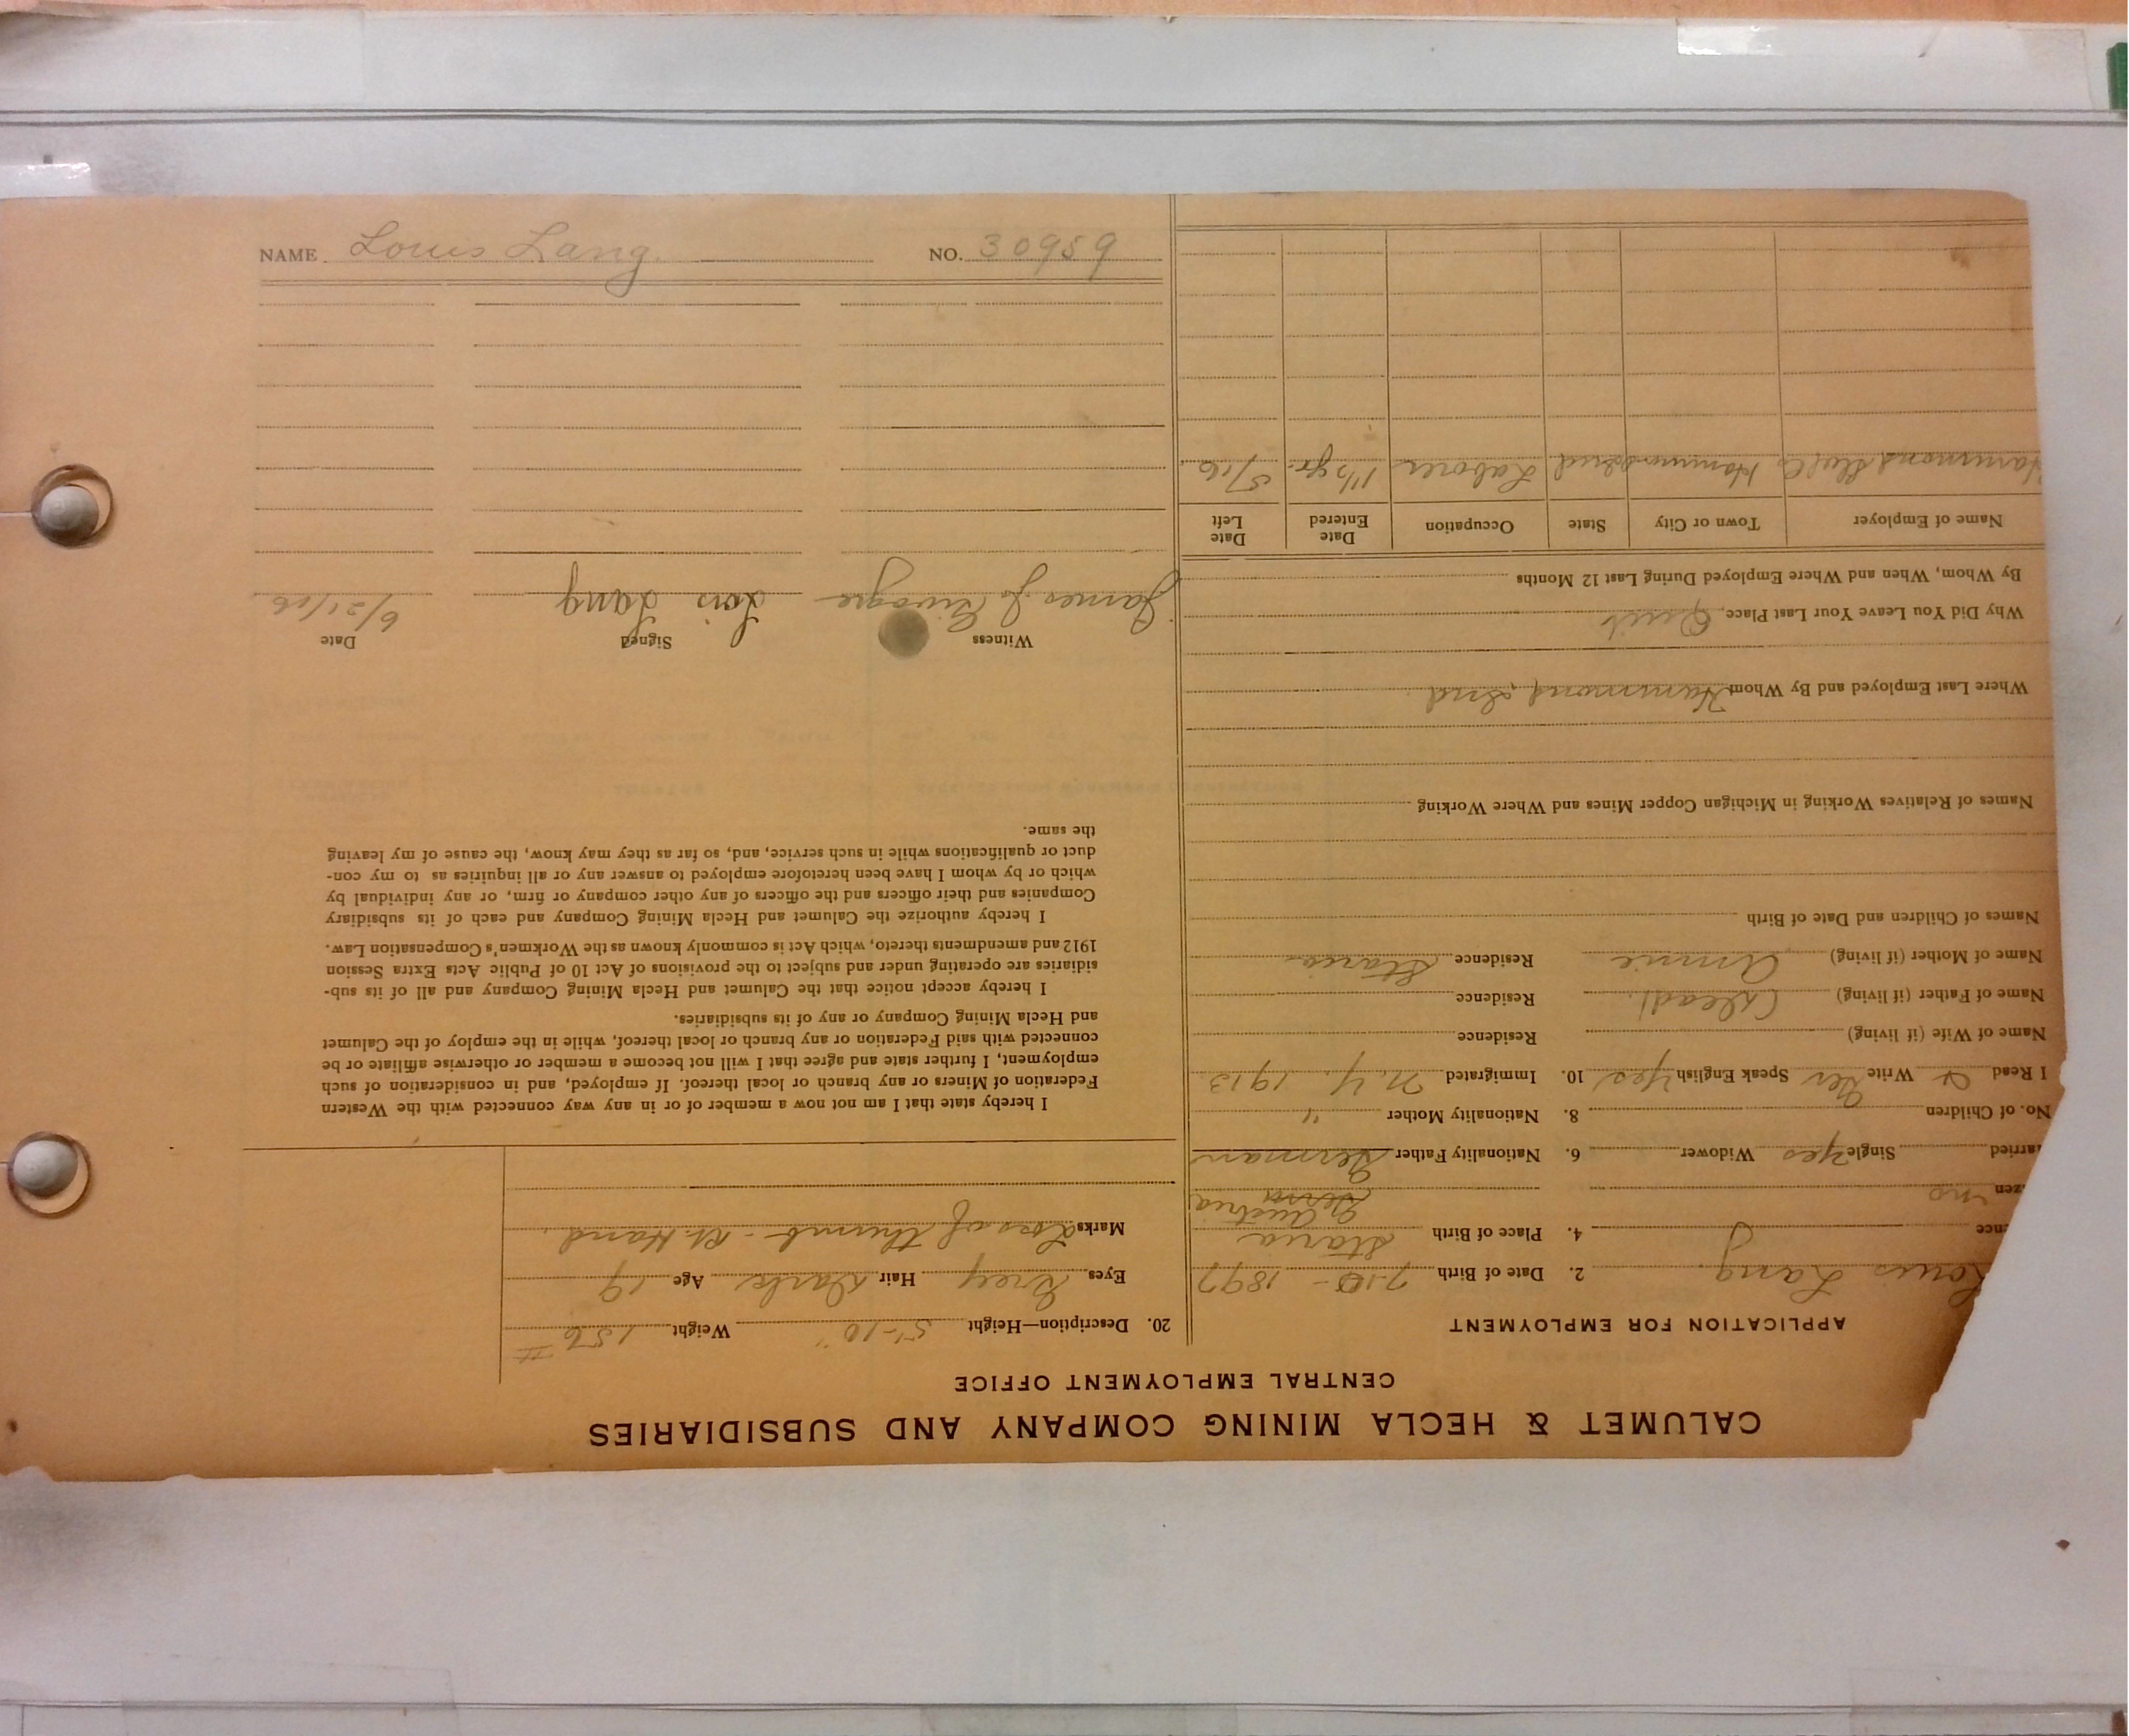 CALUMET & HECLA MINING COMPANY AND SUBSIDIARIES
CENTRAL EMPLOYMENT OFFICE
APPLICATION FOR EMPLOYMENT
Louis Lang. 2. Date of Birth 7-10- 1897
ence 4. Place of Birth Staria
Austria
zen no
arried Single Yes Widower 6. Nationality Father German
No. of Children 8. Nationality Mother "
I Read & Write Ger Speak English Yes 10. Immigrated N.Y. 1913
Name of Wife (if living) Residence
Name of Father (if living) (dead). Residence
Name of Mother (if living) Annie Residence Staria
Names of Children and Date of Birth
Names of Relatives Working in Michigan Copper Mines and Where Working
Where Last Employed and By Whom Hammond, Ind
Why Did You Leave Your Last Place, Quit
By Whom, When and Where Employed During Last 12 Months
Name of Employer Town or City State Occupation Date Entered Date Left
Hammond Ind Laborer 1 1/2 yr. 5/16
20. Description—Height 5'-10" Weight 156 #
Eyes Grey Hair Dark Age 19
Marks Loss of thumb - Rt. Hand.
I hereby state that I am not now a member of or in any way connected with the Western
Federation of Miners or any branch or local thereof. If employed, and in consideration of such
employment, I further state and agree that I will not become a member or otherwise affiliate or be
connected with said Federation or any branch or local thereof, while in the employ of the Calumet
and Hecla Mining Company or any of its subsidiaries.
I hereby accept notice that the Calumet and Hecla Mining Company and all of its sub-
sidiaries are operating under and subject to the provisions of Act 10 of Public Acts Extra Session
1912 and amendments thereto, which Act is commonly known as the Workmen's Compensation Law.
I hereby authorize the Calumet and Hecla Mining Company and each of its subsidiary
Companies and their officers and the officers of any other company or firm, or any individual by
which or by whom I have been heretofore employed to answer any or all inquiries as to my con-
duct or qualifications while in such service, and, so far as they may know, the cause of my leaving
the same.
Witness Signed Date
James J. Lois Lang 6/21/16
NAME Louis Lang. NO. 30959